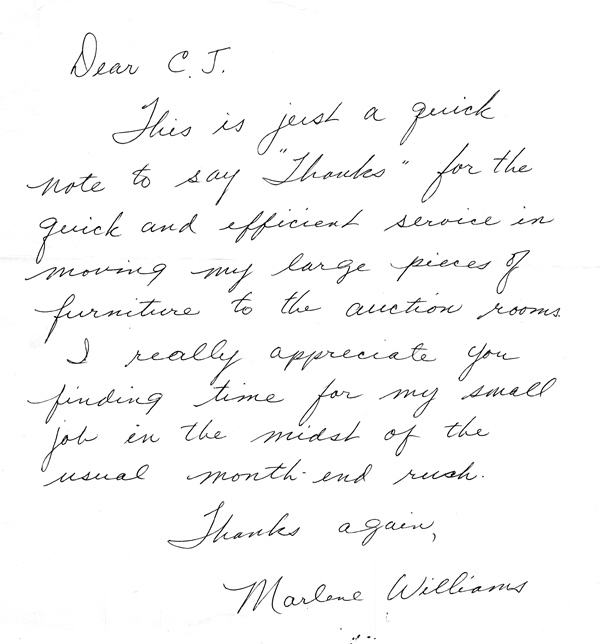 Dear C. J.
This is just a quick
note to say "Thanks" for the
quick and efficient service in
moving my large pieces of
furniture to the auction rooms.
I really appreciate you
finding time for my small
job in the midst of the
usual month-end rush.
Thanks again,
Marlene Williams